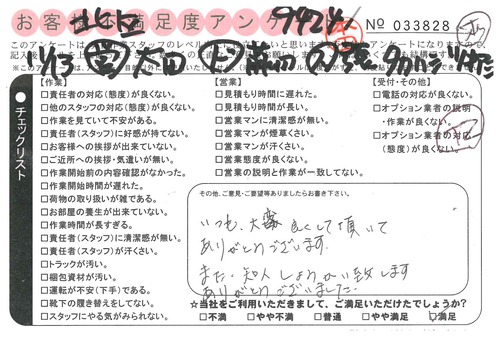 お客様満足度アンケ
北区
No 033828
このアンケートは
1/13
太田
チェックリスト
【作業】
□責任者の対応(態度)が良くない。
□他のスタッフの対応(態度)が良くない。
□作業を見ていて不安がある。
□責任者(スタッフ)に好感が持てない。
□お客様への挨拶が出来ていない。
□ご近所への挨拶・気遣いが無い。
□作業開始前の内容確認がなかった。
□作業開始時間が遅れた。
□荷物の取り扱いが雑である。
□お部屋の養生が出来ていない。
□作業時間が長すぎる。
□責任者(スタッフ)に清潔感が無い。
□責任者(スタッフ)が汗くさい。
□トラックが汚い。
□梱包資材が汚い。
□運転が不安(下手)である。
□靴下の履き替えをしてない。
□スタッフにやる気がみられない。
【営業】
□見積もり時間に遅れた。
□見積もり時間が長い。
□営業マンに清潔感が無い。
□営業マンが煙草くさい。
□営業マンが汗くさい。
□営業態度が良くない。
□営業の説明と作業が一致してない。
【受付・その他】
□電話の対応が良くない。
□オプション業者の説明
・作業が良くない。
□オプション業者の対応
(態度)が良くない。
その他、ご意見・ご要望等ありましたらお書き下さい。
いつも、大変良くして頂いて
ありがとうございます。
また、知人しょうかい致します
ありがとうございました。
☆当社をご利用いただきまして、ご満足いただけたでしょうか?
□不満 □やや不満 □普通 □やや満足 □満足